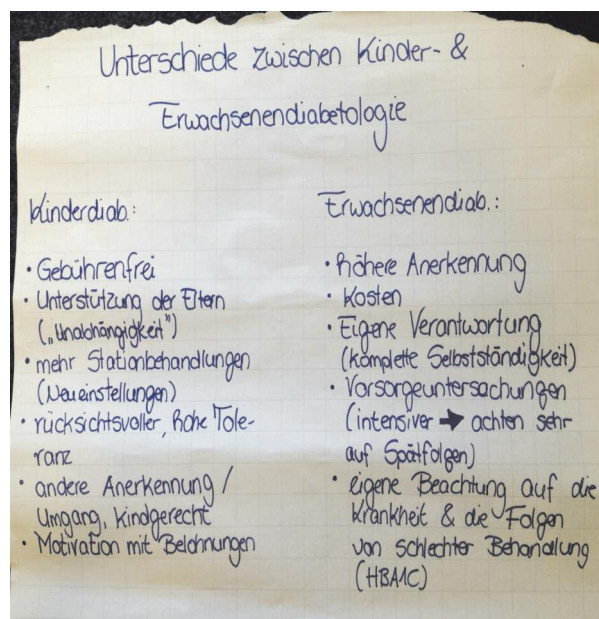 Unterschiede zwischen Kinder- &
Erwachsenendiabetologie
Kinderdiab.:
• Gebührenfrei
• Unterstützung der Eltern
(„Unabhängigkeit")
• mehr Stationbehandlungen
(Neueinstellungen)
• rücksichtsvoller, hohe Tole-
ranz
• andere Anerkennung /
Umgang, Kindgerecht
• Motivation mit Belohnungen
Erwachsenendiab.:
• höhere Anerkennung
• Kosten
• Eigene Verantwortung
(komplette Selbstständigkeit)
• Vorsorgeuntersuchungen
(intensiver → achten sehr
auf Spätfolgen)
• eigene Beachtung auf die
Krankheit & die Folgen
von schlechter Behandlung
(HBA1C)